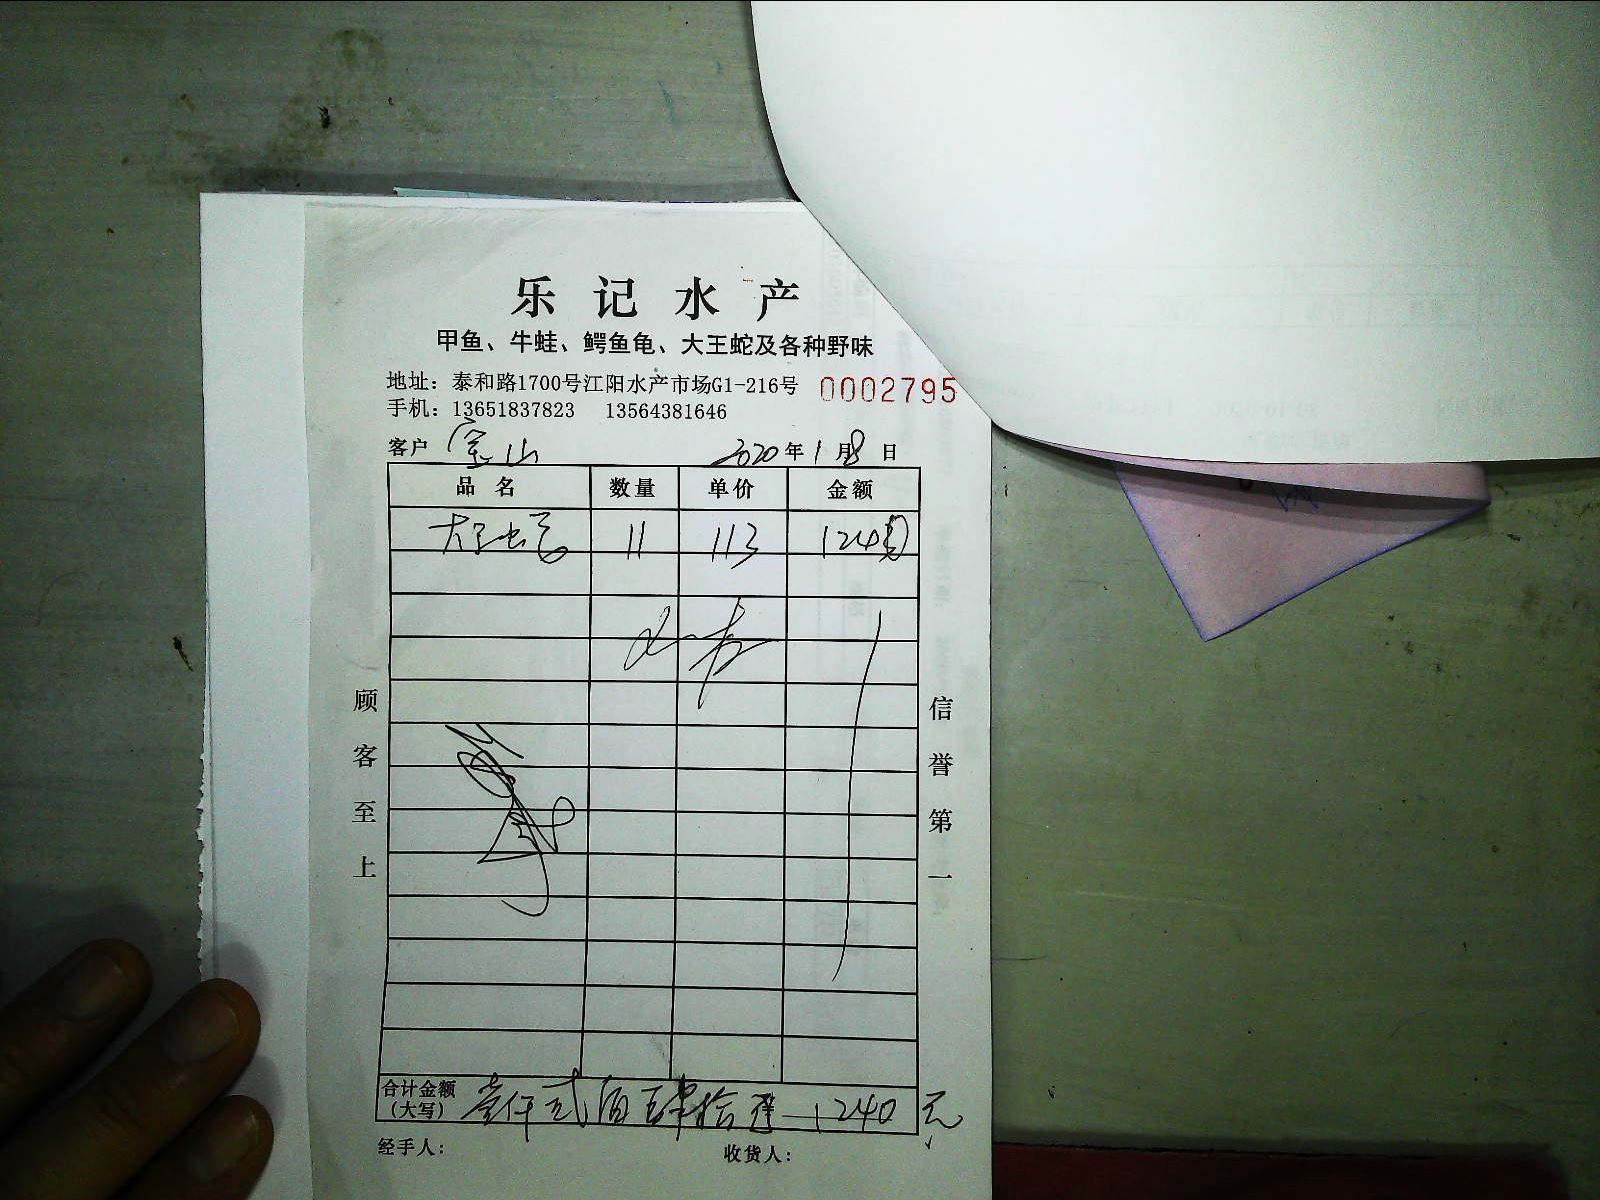 乐记水产
甲鱼、牛蛙、鳄鱼龟、大王蛇及各种野味
地址：泰和路1700号江阳水产市场G1-216号 0002795
手机：13651837823 13564381646
客户 宝山 2020年1月8日
品名 数量 单价 金额
大王蛇 11 113 1240
顾客至上
信誉第一
合计金额（大写） 壹仟贰佰肆拾 1240元
经手人： 收货人：